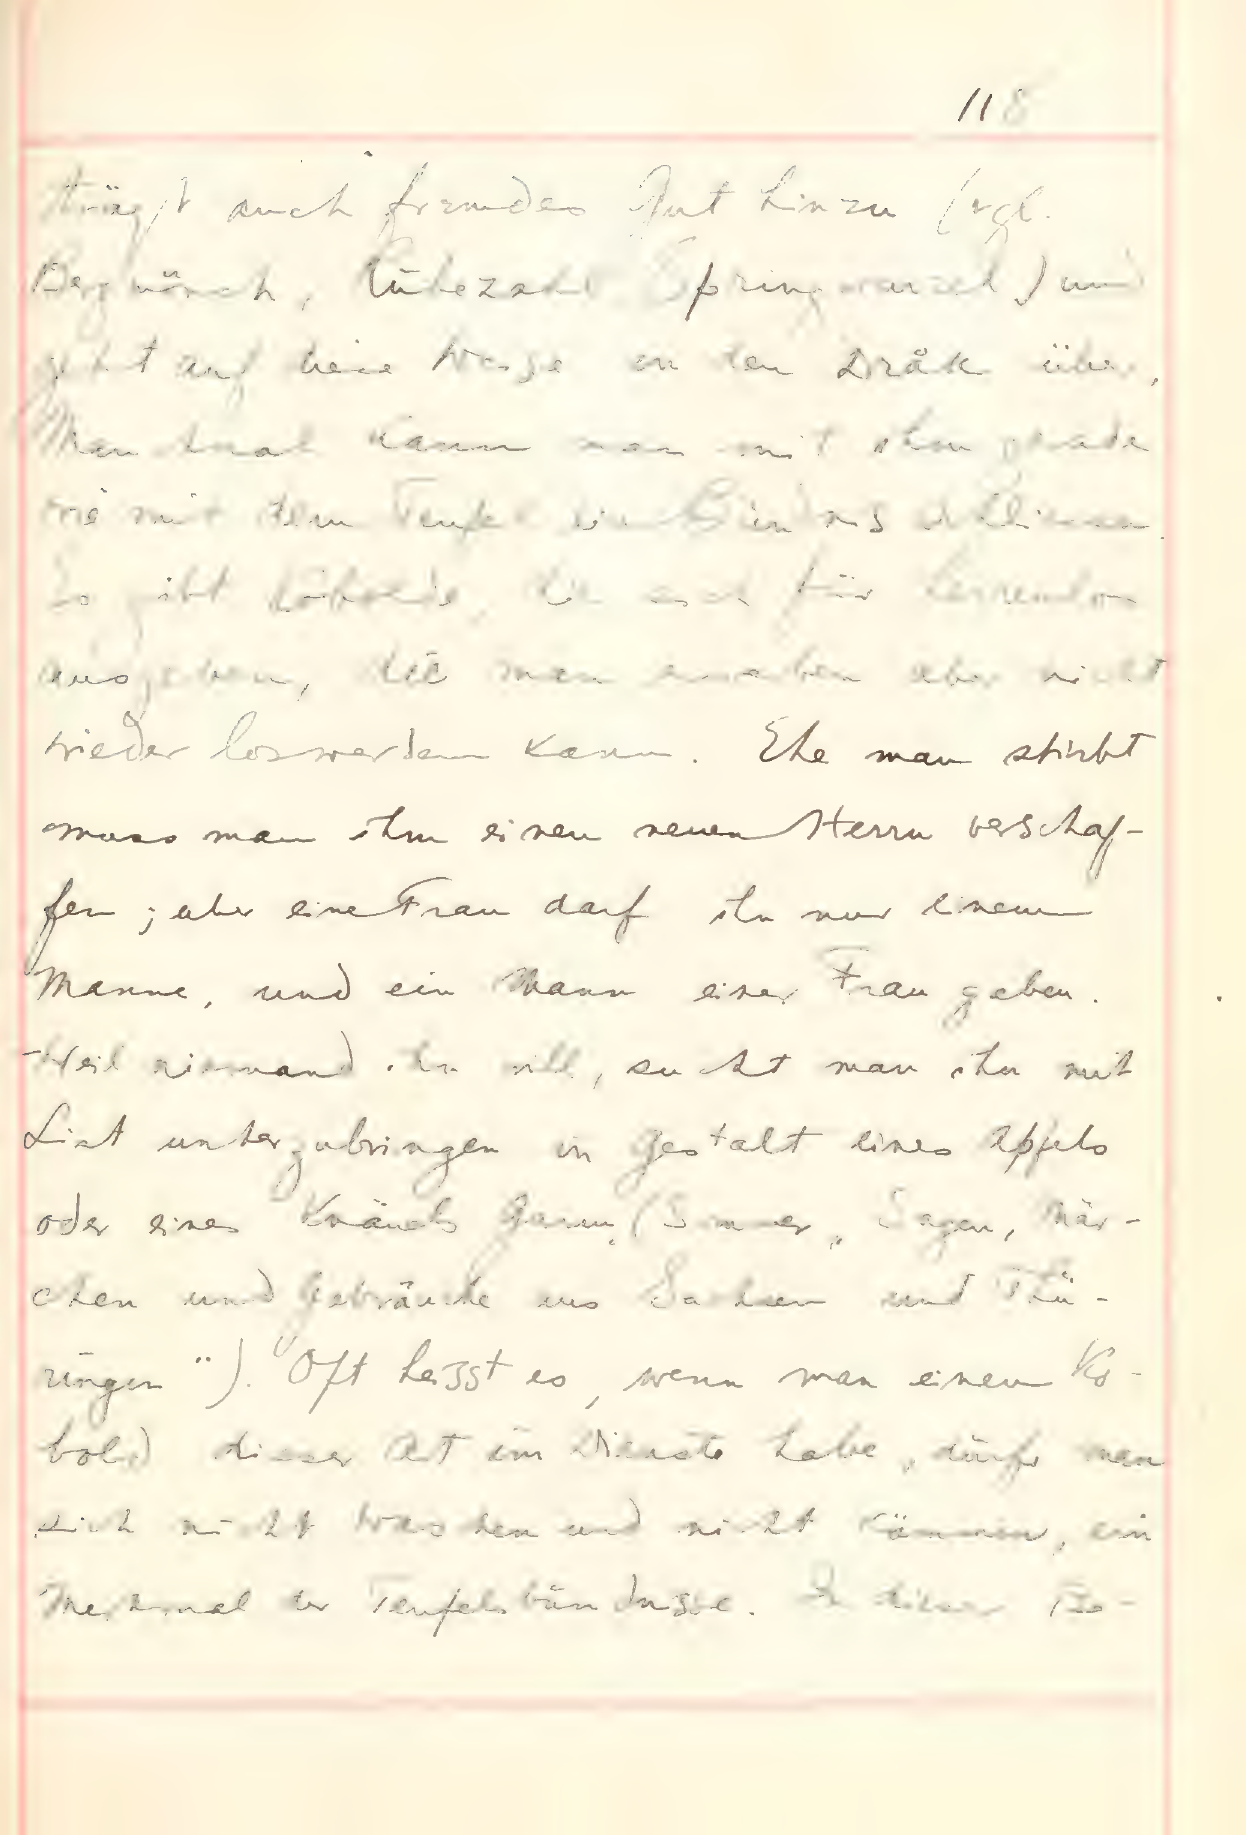 118
trägt auch fremdes Gut hinzu (vgl.
Bergmönch, Rübezahl Springwurzel) und
geht auf diese Weise in den Dråk über.
Manchmal kann man mit ihm gerade
wie mit dem Teufel ein Bündnis schliessen.
Es gibt Kobolde, die sich für herrenlos
ausgeben, die man erwerben aber nicht
wieder loswerden kann. Ehe man stirbt
muss man ihm einen neuen Herrn verschaf-
fen; aber eine Frau darf ihn nur einem
Manne, und ein Mann einer Frau geben.
Weil niemand ihn will, sucht man ihn mit
List unterzubringen in Gestalt eines Apfels
oder eines Knäuels Garn. (Sommer „Sagen, Mär-
chen und Gebräuche aus Sachsen und Thü-
ringen“). Oft heisst es, wenn man einen Ko-
bold dieser Art im Dienste habe, dürfe man
sich nicht waschen und nicht kämmen, ein
Merkmal der Teufelsbündnisse. In dieser Be-